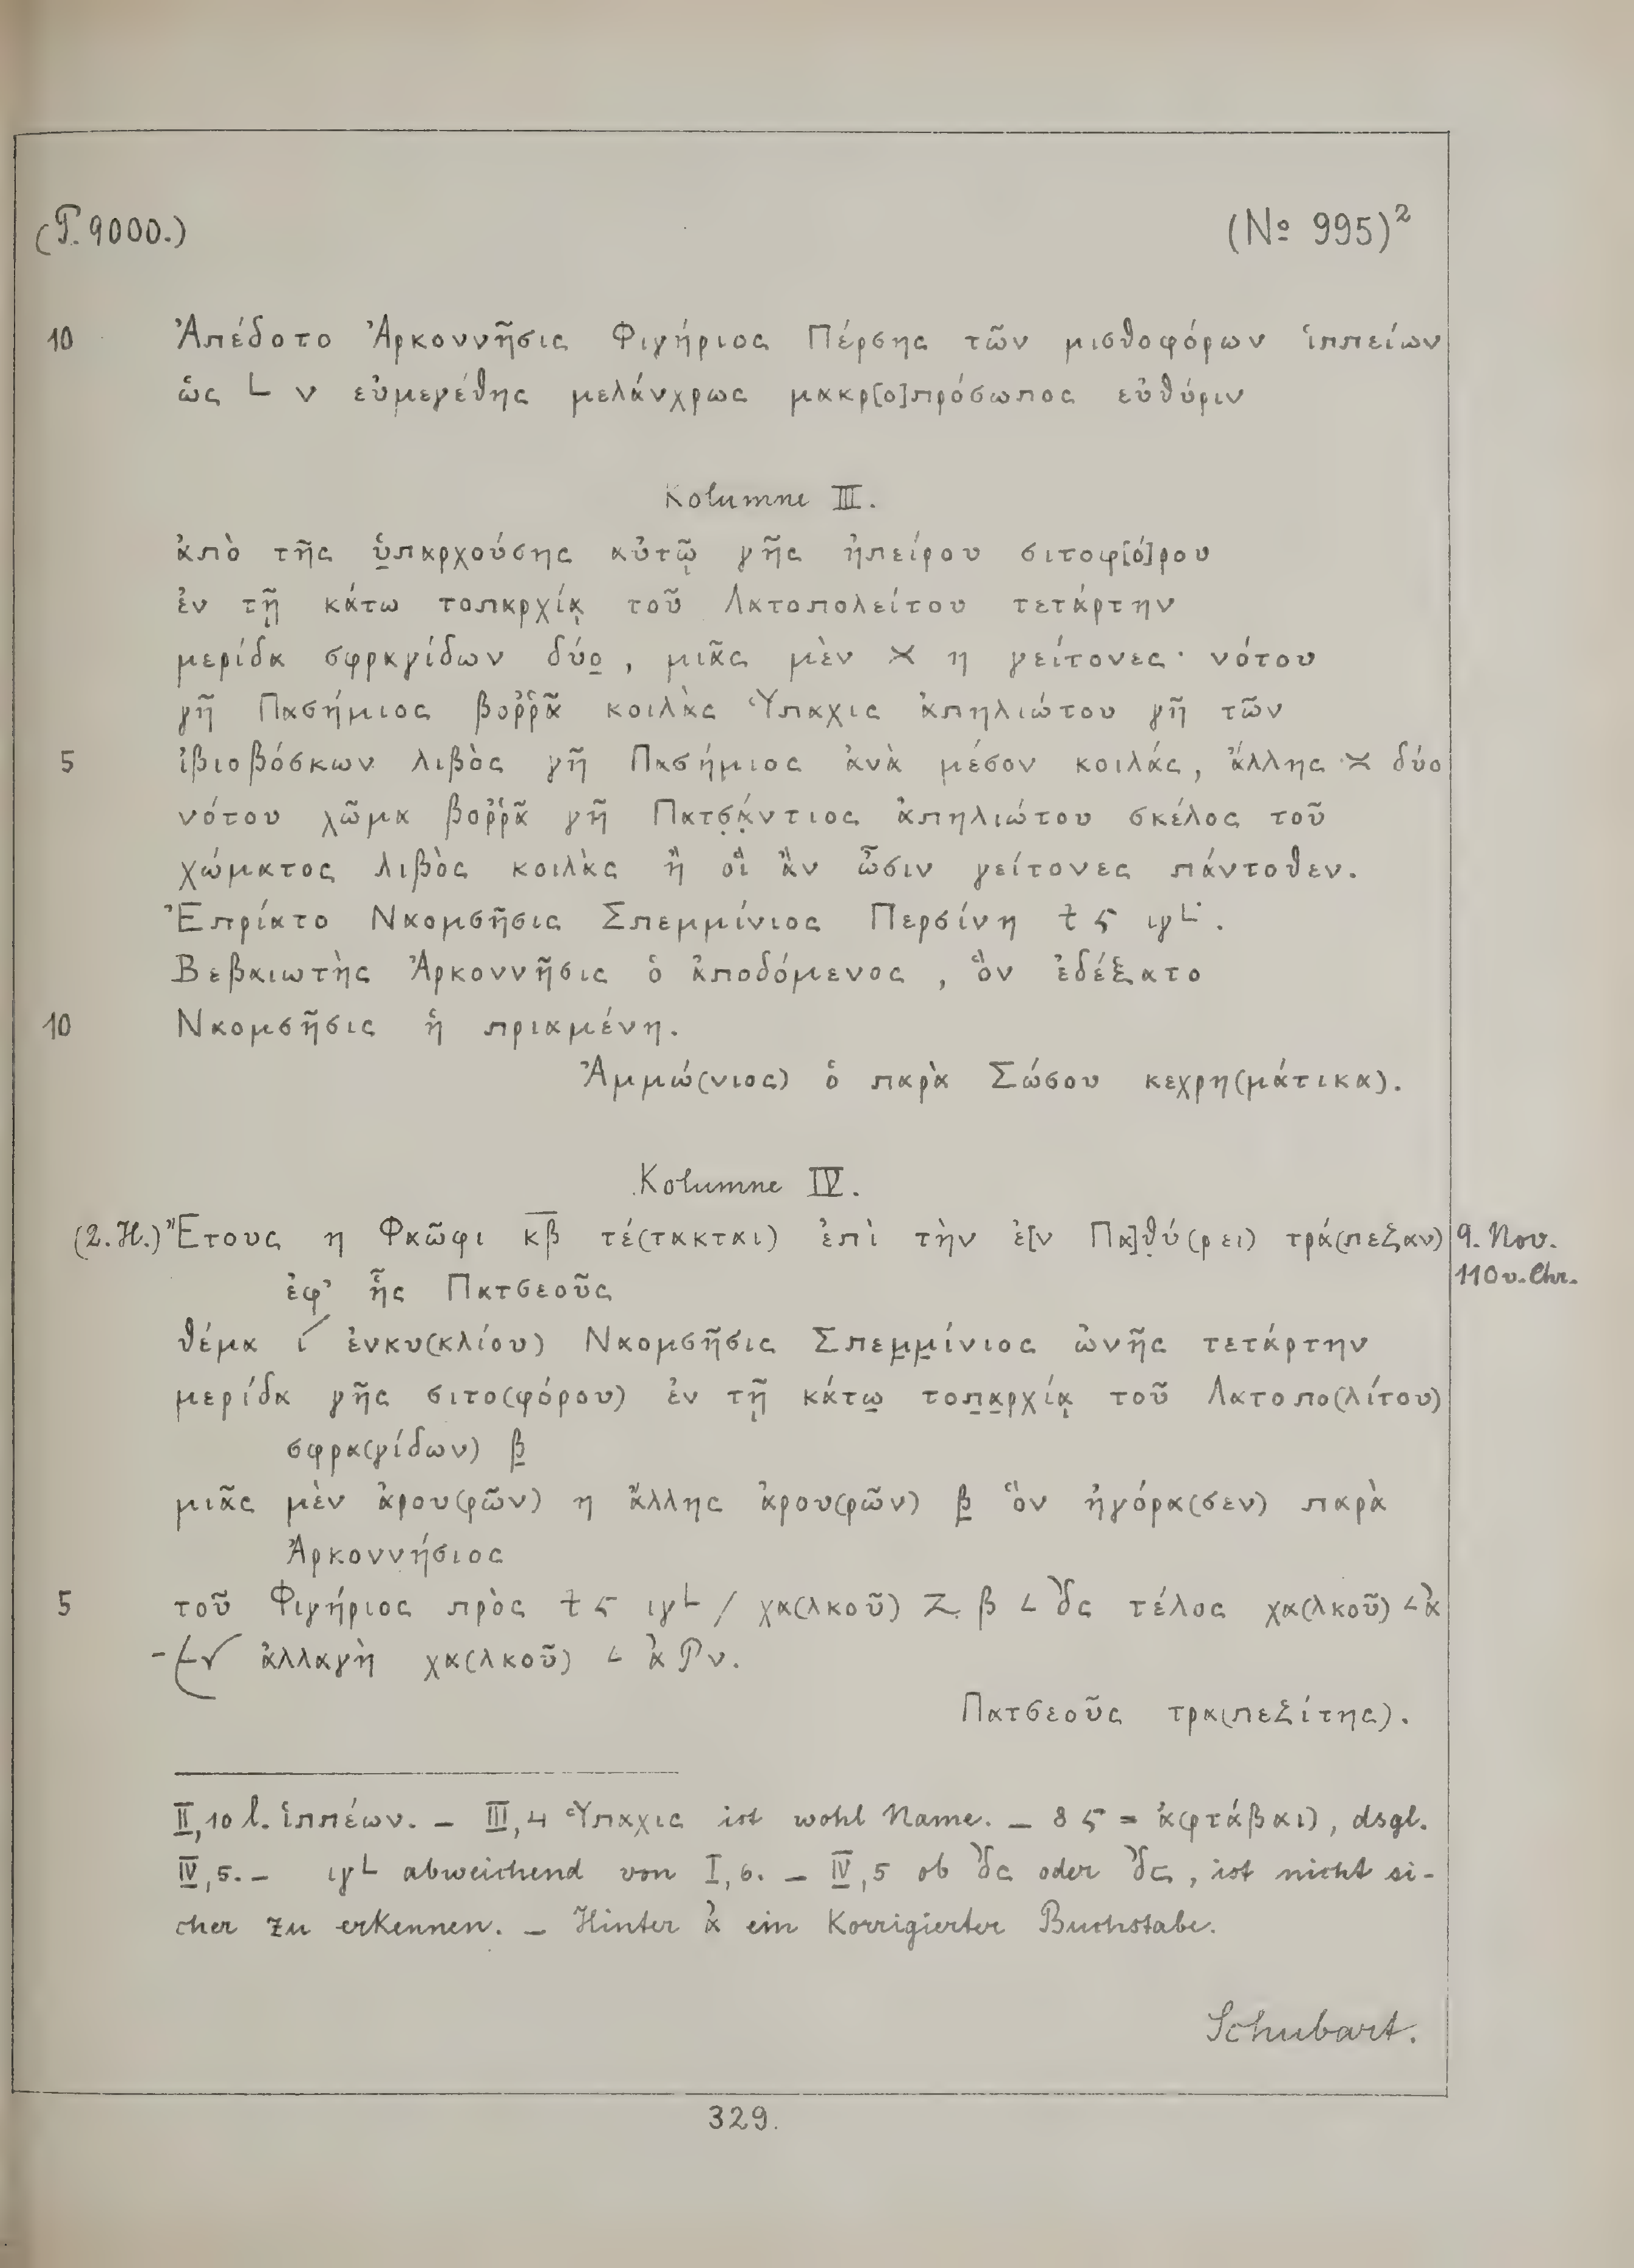 (P. 9000.) (No 995)²
10 Ἀπέδοτο Ἀρκοννῆσις Φιγήριος Πέρσης τῶν μισθοφόρων ἱππείων
ὡς L ν εὐμεγέθης μελάνχρως μακρ[ο]πρόσωπος εὐθύριν
Kolumne III.
ἀπὸ τῆς ὑ̣παρχούσης αὐτῷ γῆς ἠπείρου σιτοφ[ό]ρου
ἐν τῇ κάτω τοπαρχίᾳ τοῦ Λατοπολείτου τετάρτην
μερίδα σφραγίδων δύο̣, μιᾶς μὲν 𐅵 η γείτονες· νότου
γῆ Πασήμιος βοῤῥᾶ κοιλὰς Ὑπαχις ἀπηλιώτου γῆ τῶν
5 ἰβιοβόσκων λιβὸς γῆ Πασήμιος ἀνὰ μέσον κοιλάς, ἄλλης 𐅵 δύο
νότου χῶμα βοῤῥᾶ γῆ Πατσ̣ά̣ντιος ἀπηλιώτου σκέλος τοῦ
χώματος λιβὸς κοιλὰς ἢ οἳ ἂν ὦσιν γείτονες πάντοθεν.
Ἐπρίατο Ναομσῆσις Σπεμμίνιος Περσίνη ϯ ϛ ιγL.
Βεβαιωτὴς Ἀρκοννῆσις ὁ ἀποδόμενος, ὃν ἐδέξατο
10 Ναομσῆσις ἡ πριαμένη.
Ἀμμώ(νιος) ὁ παρὰ Σώσου κεχρη(μάτικα).
Kolumne IV.
(2. H.) Ἔτους η Φαῶφι κ̅β̅ τέ(τακται) ἐπὶ τὴν ἐ[ν Πα]θ̣ύ(ρει) τρά(πεζαν) 9. Nov.
110 v. Chr.
ἐφ' ἧς Πατσεοῦς
θέμα ί ἐνκυ(κλίου) Ναομσῆσις Σπεμ̣μ̣ίνιος ὠνῆς τετάρτην
μερίδα γῆς σιτο(φόρου) ἐν τῇ κάτω̣ τοπ̣α̣ρχίᾳ τοῦ Λατοπο(λίτου)
σφρα(γίδων) β̣
μιᾶς μὲν ἀρου(ρῶν) η ἄλλης ἀρου(ρῶν) β̣ ὃν ἠγόρα(σεν) παρὰ
Ἀρκοννήσιος
5 τοῦ Φιγήριος πρὸς ϯ ϛ ιγL / χα(λκοῦ) Ζ β L Ὰδς τέλος χα(λκοῦ) L ὰ
ἀλλαγὴ χα(λκοῦ) L ὰ Ρν.
Πατσεοῦς τρα(πεζίτης).
II, 10 l. ἱππέων. – III, 4 Ὑπαχις ist wohl Name. – 8 ϛ = ἀ(ρτάβαι), dsgl.
IV, 5. – ιγL abweichend von I, 6. – IV, 5 ob δς oder δς, ist nicht si-
cher zu erkennen. – Hinter ὰ ein korrigierter Buchstabe.
Schubart.
329.